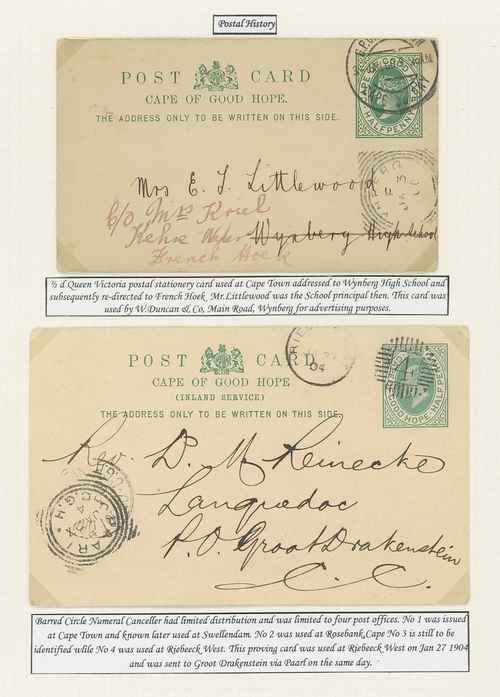 Postal History
POST CARD
CAPE OF GOOD HOPE.
THE ADDRESS ONLY TO BE WRITTEN ON THIS SIDE.
HALFPENNY
Mrs E. J. Littlewood
c/o Mrs Kriel
Wynberg High School
French Hoek
½ d Queen Victoria postal stationery card used at Cape Town addressed to Wynberg High School and
subsequently re-directed to French Hoek. Mr.Littlewood was the School principal then. This card was
used by W.Duncan & Co, Main Road, Wynberg for advertising purposes.
POST CARD
CAPE OF GOOD HOPE
(INLAND SERVICE)
THE ADDRESS ONLY TO BE WRITTEN ON THIS SIDE.
GOOD HOPE HALFPENNY
04
4
Rev. D. M Reinecke
Languedoc
P.O. Groot Drakenstein
C.C.
PAARL
Barred Circle Numeral Canceller had limited distribution and was limited to four post offices. No 1 was issued
at Cape Town and known later used at Swellendam. No 2 was used at Rosebank,Cape No 3 is still to be
identified wile No 4 was used at Riebeeck West. This proving card was used at Riebeeck West on Jan 27 1904
and was sent to Groot Drakenstein via Paarl on the same day.